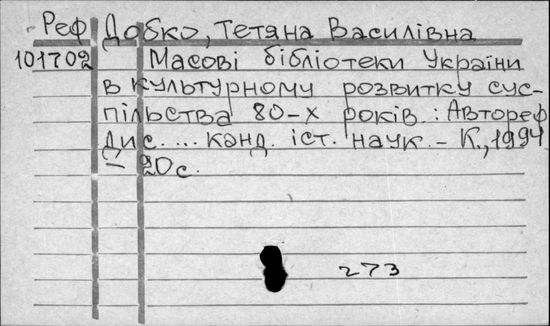 Реф Добко, Тетяна Василівна
101702 Масові бібліотеки України
в культурному розвитку сус-
пільства 80-х років.: Автореф
Дис. ... канд. іст. наук. - К., 1994
- 20с.
273